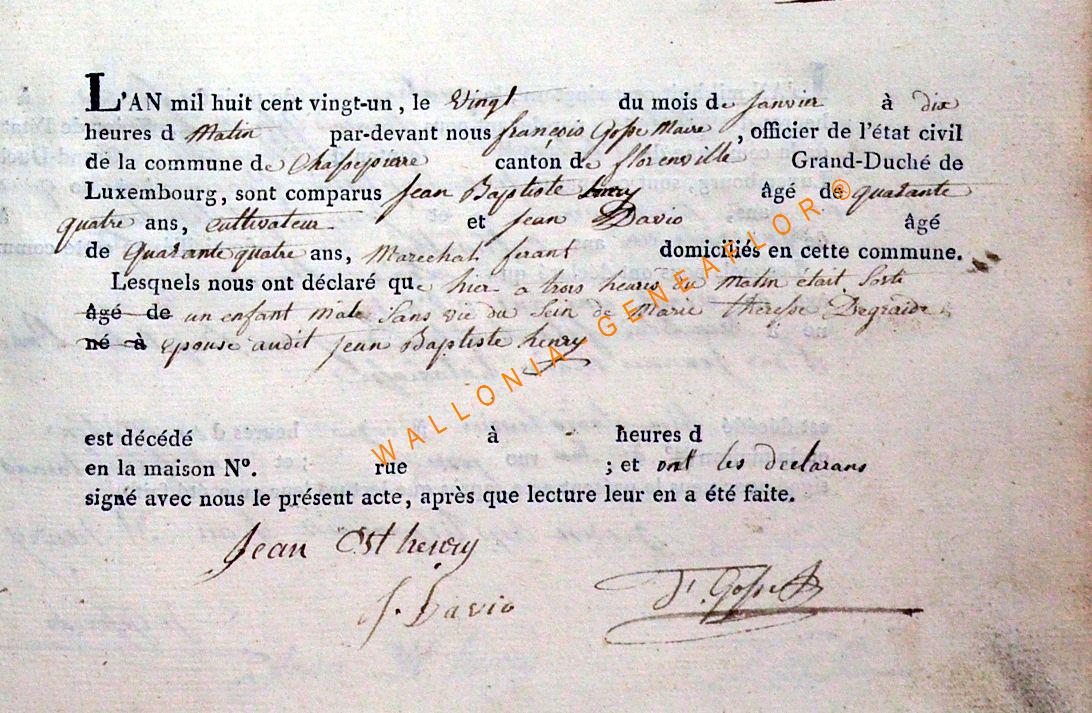 L'AN mil huit cent vingt-un, le Vingt du mois de Janvier à dix
heures d Matin par-devant nous françois Gosse Maire, officier de l'état civil
de la commune de Chassepierre canton de florenville Grand-Duché de
Luxembourg, sont comparus Jean Baptiste henry âgé de quarante
quatre ans, cultivateur et Jean Davio âgé
de quarante quatre ans, Marechal ferant domiciliés en cette commune.
Lesquels nous ont déclaré que hier a trois heures du Matin etait Sorti
Agé de un enfant male Sans vie du Sein de Marie therese Degraide
né à epouse audit Jean Baptiste henry
est décédé à heures d
en la maison N°. rue ; et ont les declarans
signé avec nous le présent acte, après que lecture leur en a été faite.
Jean Bst henry
J. Davio
F. Gosse
WALLONIA GENEAFLOR®